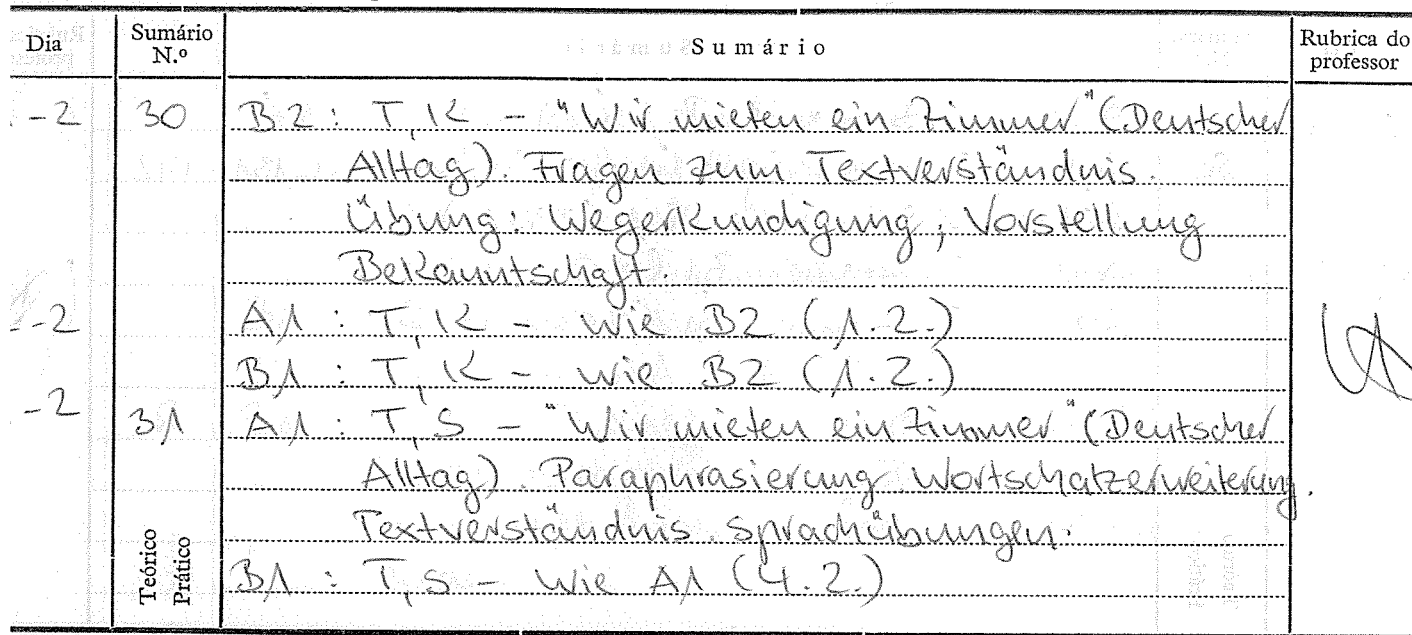 Dia Sumário N.º Sumário Rubrica do professor
-2 30 B2 : T, K - "Wir mieten ein Zimmer" (Deutscher
Alltag). Fragen zum Textverständnis.
Übung: Wegerkundigung, Vorstellung
Bekanntschaft.
-2 A1 : T, K - wie B2 (1.2.)
B1 : T, K - wie B2 (1.2.)
-2 31 A1 : T, S - "Wir mieten ein Zimmer" (Deutscher
Alltag). Paraphrasierung. Wortschatzerweiterung.
Textverständnis. Sprachübungen.
B1 : T, S - wie A1 (4.2.)
Teórico
Prático